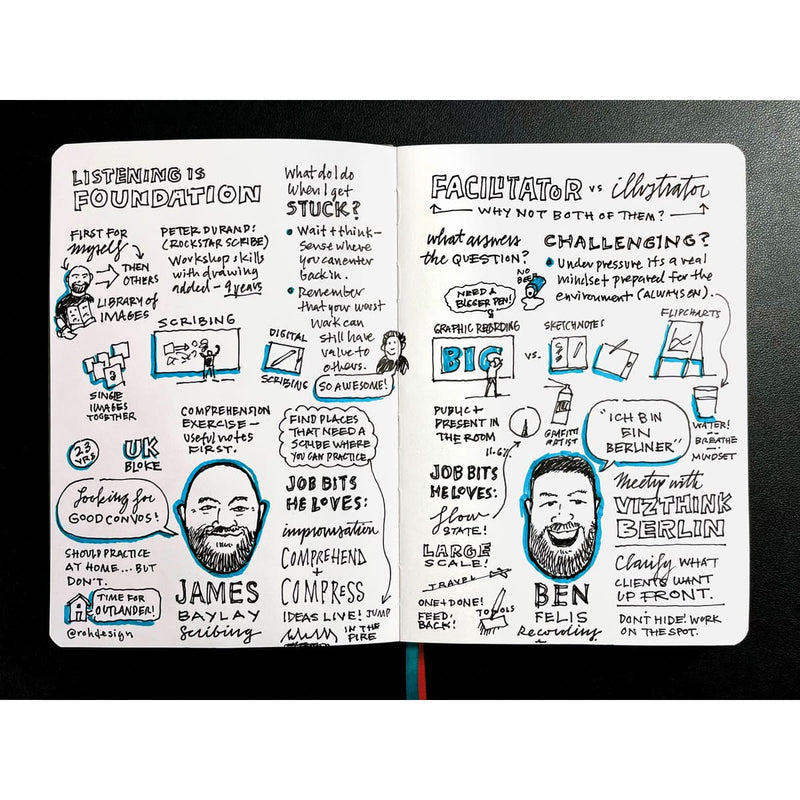 LISTENING IS
FOUNDATION
FIRST FOR
myself
THEN
OTHERS
LIBRARY OF
IMAGES
PETER DURAND:
(ROCKSTAR SCRIBE)
Workshop skills
with drawing
added – 9 years
SCRIBING
DIGITAL
SCRIBING
SINGLE
IMAGES
TOGETHER
COMPREHENSION
EXERCISE –
useful notes
FIRST.
2.3
YRS
UK
BLOKE
Looking for
GOOD CONVOS!
SHOULD PRACTICE
AT HOME... BUT
DON'T.
TIME FOR
OUTLANDER!
@rohdesign
JAMES
BAYLAY
Scribing
What do I do
when I get
STUCK?
• Wait + think –
sense where
you can enter
back in.
• Remember
that your worst
work can
still have
value to
others.
SO AWESOME!
FIND PLACES
THAT NEED A
SCRIBE WHERE
YOU CAN PRACTICE.
JOB BITS
HE LOVES:
improvisation
COMPREHEND
+
COMPRESS
IDEAS LIVE!
JUMP
IN THE
FIRE
FACILITATOR vs illustrator
WHY NOT BOTH OF THEM?
what answers
the QUESTION?
NEED A
BIGGER PEN!
NO
BEE
CHALLENGING?
• Under pressure its a real
mindset prepared for the
environment (ALWAYS ON).
GRAPHIC RECORDING
BIG
VS.
SKETCHNOTES
FLIPCHARTS
PUBLIC +
PRESENT IN
THE ROOM
GRAFFITI
ARTIST
WATER!
BREATHE
MINDSET
"ICH BIN
EIN
BERLINER"
JOB BITS
HE LOVES:
flow
STATE!
LARGE
SCALE!
TRAVEL
ONE + DONE!
FEED
BACK!
TOOLS
BEN
FELIS
Recording
Meetup with
VIZTHINK
BERLIN
Clarify WHAT
CLIENTS WANT
UP FRONT.
DON'T HIDE! WORK
ON THE SPOT.